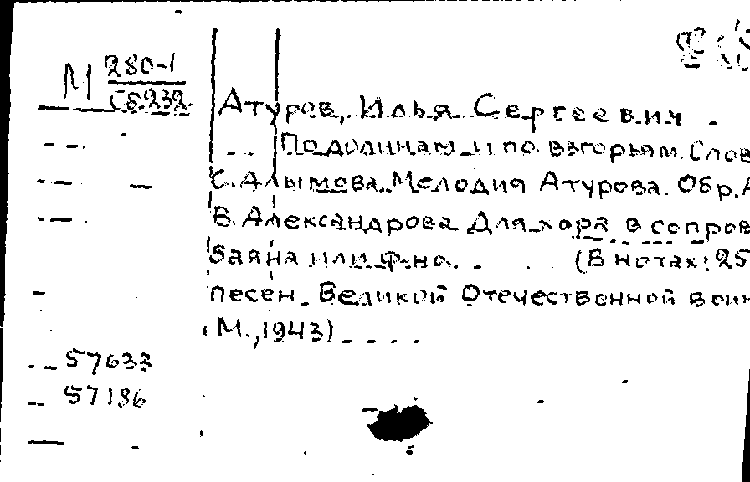 М 280-1
Сб232
Атуров, Илья Сергеевич.
По долинам и по взгорьям. Слов
С. Алымова. Мелодия Атурова. Обр. А
В. Александрова. Для хора в сопров
баяна или ф-но. (В нотах: 25
песен Великой Отечественной войн
М., 1943)
57633
57186